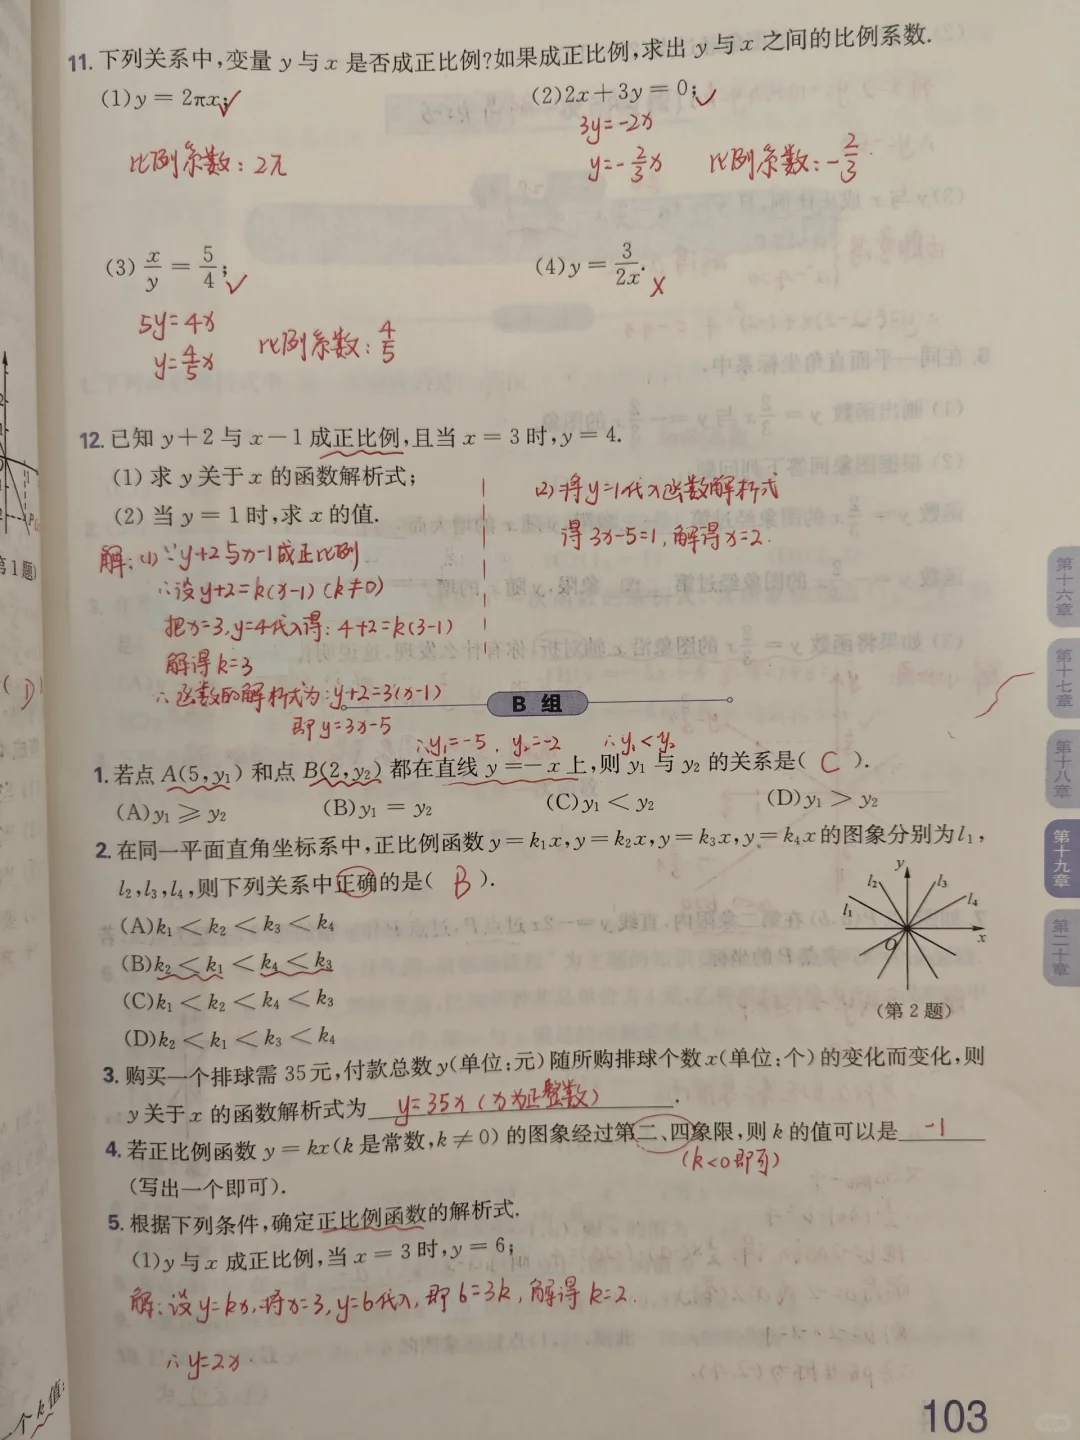 11. 下列关系中,变量 y 与 x 是否成正比例?如果成正比例,求出 y 与 x 之间的比例系数.
(1) y = 2πx; ✓ (2) 2x + 3y = 0; ✓
3y=-2x
比例系数: 2π y=-2/3x 比例系数: -2/3.
(3) x/y = 5/4; ✓ (4) y = 3/2x. ✗
5y=4x
y=4/5x 比例系数: 4/5
12. 已知 y+2 与 x-1 成正比例,且当 x = 3 时,y = 4.
(1) 求 y 关于 x 的函数解析式;
(2) 当 y = 1 时,求 x 的值.
解:(1)∵y+2与x-1成正比例
∴设y+2=k(x-1) (k≠0)
把x=3,y=4代入得: 4+2=k(3-1)
解得k=3
∴函数的解析式为:y+2=3(x-1)
即y=3x-5
(2)将y=1代入函数解析式
得3x-5=1,解得x=2.
B 组
∴y₁=-5, y₂=-2 ∴y₁<y₂
1. 若点 A(5,y₁) 和点 B(2,y₂) 都在直线 y=-x 上,则 y₁ 与 y₂ 的关系是( C ).
(A) y₁ ⩾ y₂ (B) y₁ = y₂ (C) y₁ < y₂ (D) y₁ > y₂
2. 在同一平面直角坐标系中,正比例函数 y=k₁x,y=k₂x,y=k₃x,y=k₄x 的图象分别为 l₁,
l₂,l₃,l₄,则下列关系中正确的是( B ).
(A) k₁ < k₂ < k₃ < k₄
(B) k₂ < k₁ < k₄ < k₃
(C) k₁ < k₂ < k₄ < k₃
(D) k₂ < k₁ < k₃ < k₄
y
l₂ l₃
l₁ l₄
O x
(第 2 题)
3. 购买一个排球需 35 元,付款总数 y(单位:元)随所购排球个数 x(单位:个)的变化而变化,则
y 关于 x 的函数解析式为 y=35x (x为正整数).
4. 若正比例函数 y=kx(k 是常数,k≠0)的图象经过第二、四象限,则 k 的值可以是 -1
(k<0即可)
(写出一个即可).
5. 根据下列条件,确定正比例函数的解析式.
(1) y 与 x 成正比例,当 x = 3 时,y = 6;
解:设y=kx,将x=3,y=6代入,即6=3k,解得k=2.
∴y=2x.
103
第十六章
第十七章
第十八章
第十九章
第二十章
第1题)
( D )
一个k值: